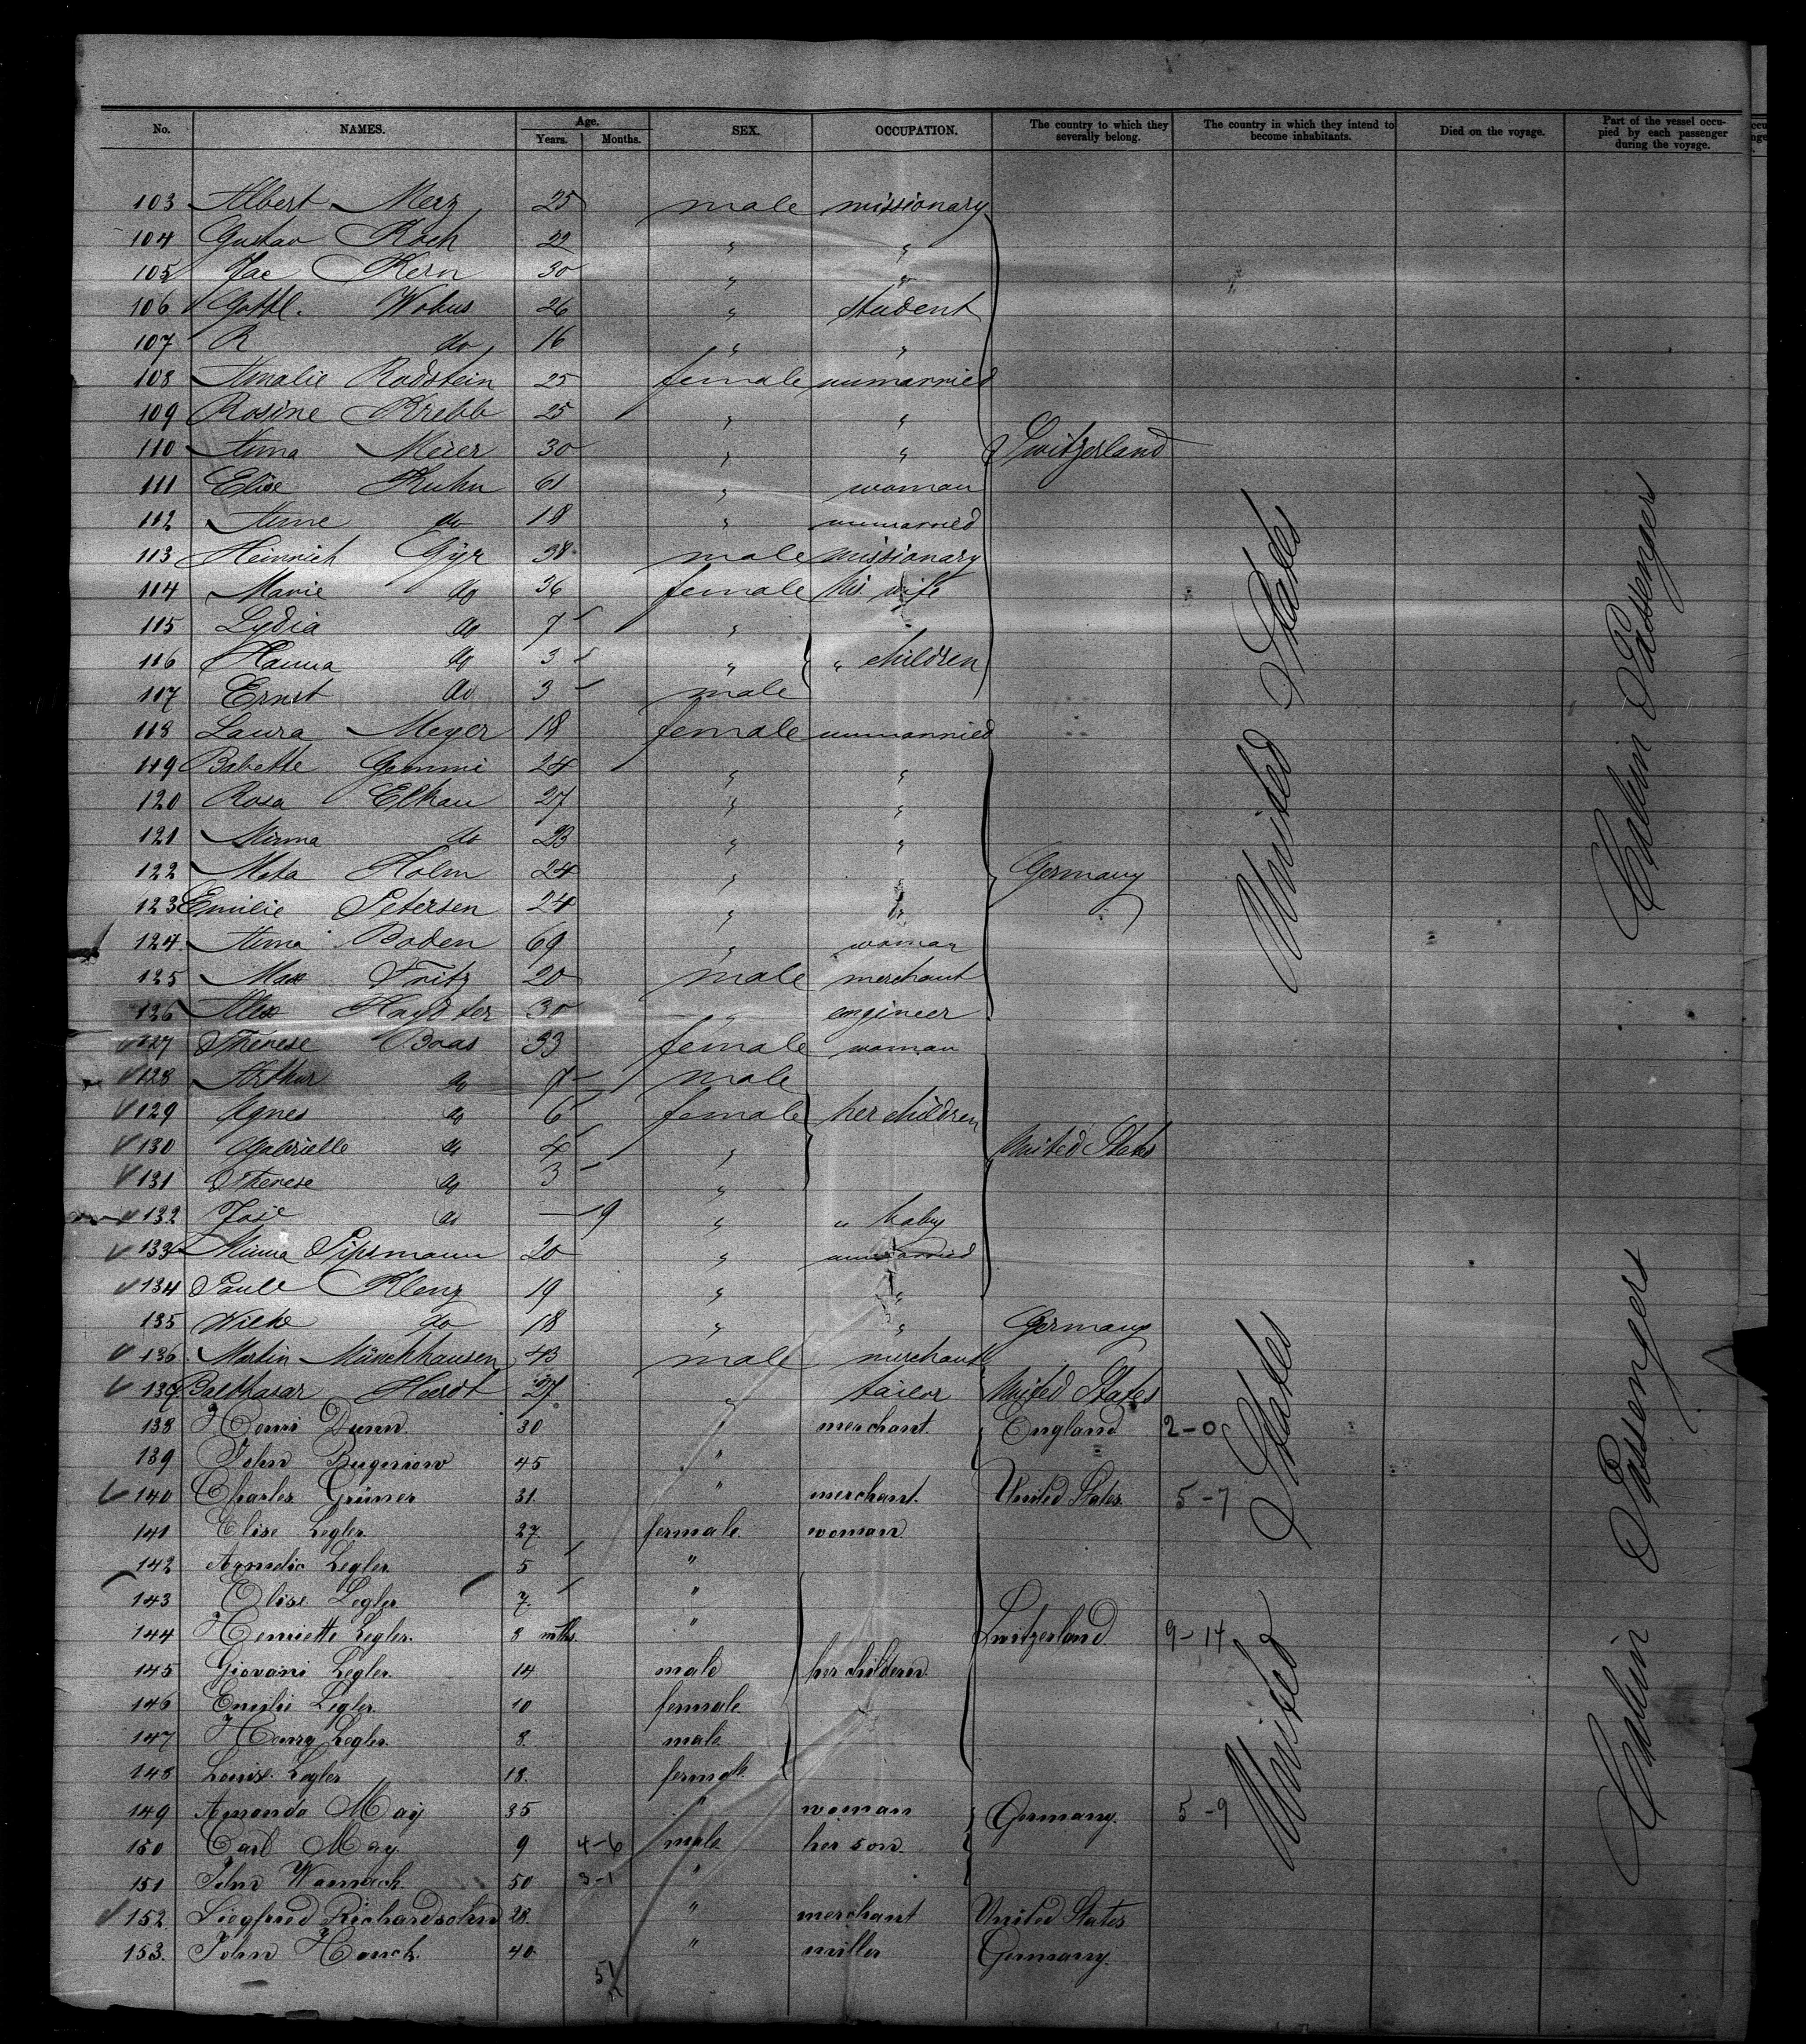 No. NAMES. Age. Years. Months. SEX. OCCUPATION. The country to which they severally belong. The country in which they intend to become inhabitants. Died on the voyage. Part of the vessel occupied by each passenger during the voyage.
103 Albert Merz 25 male missionary
104 Gustav Koch 22 " "
105 Jac Kern 30 " "
106 Gottl. Wobus 26 " student
107 R do 16 " "
108 Amalie Rodstein 25 female unmarried
109 Rosine Krebb 25 " "
110 Anna Meier 30 " " Switzerland
111 Elise Kuhn 61 " woman
112 Anne do 18 " unmarried
113 Heinrich Gÿr 38 male missionary
114 Marie do 36 female his wife
115 Lydia do 7 "
116 Hanna do 3 " " children
117 Ernst do 3 male
118 Laura Meyer 18 female unmarried
119 Babette Gemmi 24 " "
120 Rosa Elkan 27 " "
121 Minna do 23 " "
122 Meta Holm 24 " " Germany
123 Emilie Petersen 24 " "
124 Anna Boden 69 " woman
125 Max Fritz 20 male merchant
126 Alex Haydter 30 " engineer
127 Therese Boas 33 female woman
128 Arthur do 7 male
129 Agnes do 6 female her children
130 Gabrielle do 4 " United States
131 Therese do 3 "
132 Josie do — 9 " " baby
133 Minna Sipsmann 20 " unmarried
134 Paule Klenz 19 " "
135 Wilke do 18 " " Germany
136 Martin Münchhausen 43 male merchant
137 Balthasar Heerdt 27 " tailor United States
138 Henri Dunn 30 merchant. England 2-0
139 John 45 "
140 Charles Grüner 31. " merchant. United States 5-7
141 Elise Legler 27 female. woman.
142 Legler 5 "
143 Elise Legler 7. "
144 Henriette Legler. 8 mths. " Switzerland 9-14
145 Giovani Legler. 14 male her children.
146 Legler 10 female.
147 Henry Legler. 8. male
148 Louise Legler 18. female.
149 Amanda May 35 " woman Germany. 5-9
150 Carl May. 9 4-6 male her son.
151 John Warnick. 50 3-1 "
152. Siegfried Richardsohn 28. " merchant United States
153. John Hanck. 40 " miller Germany.
51
United States
United States
Cabin Passengers
Cabin Passengers